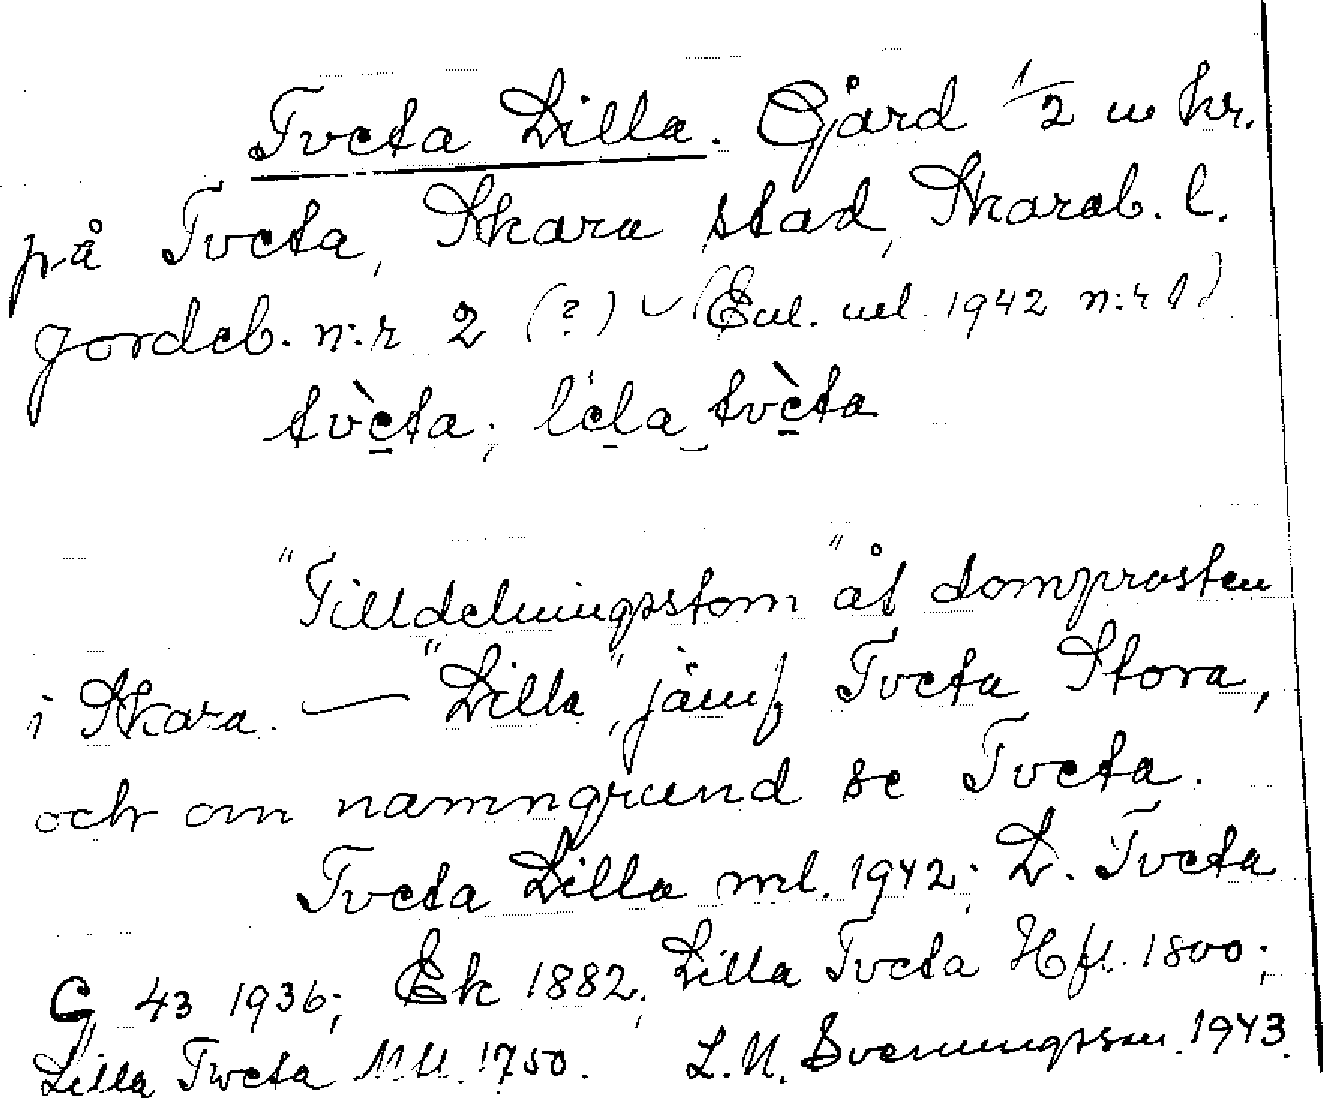 Tveta Lilla. Gård 1/2 m kr.
på Tveta, Skara stad, Skarab. l.
Jordeb. n:r 2 (?) (Enl. ml 1942 n:r 1)
tvèta; lela tvèta
"Tilldelningsstom" åt domprosten
i Skara. — "Lilla", jämf Tveta Stora,
och om namngrund se Tveta.
Tveta Lilla ml. 1942; L. Tveta
G 43 1936; Ek 1882; Lilla Tveta Hfl. 1800;
Lilla Tweta 1750. L.N. Svenungsson. 1943.